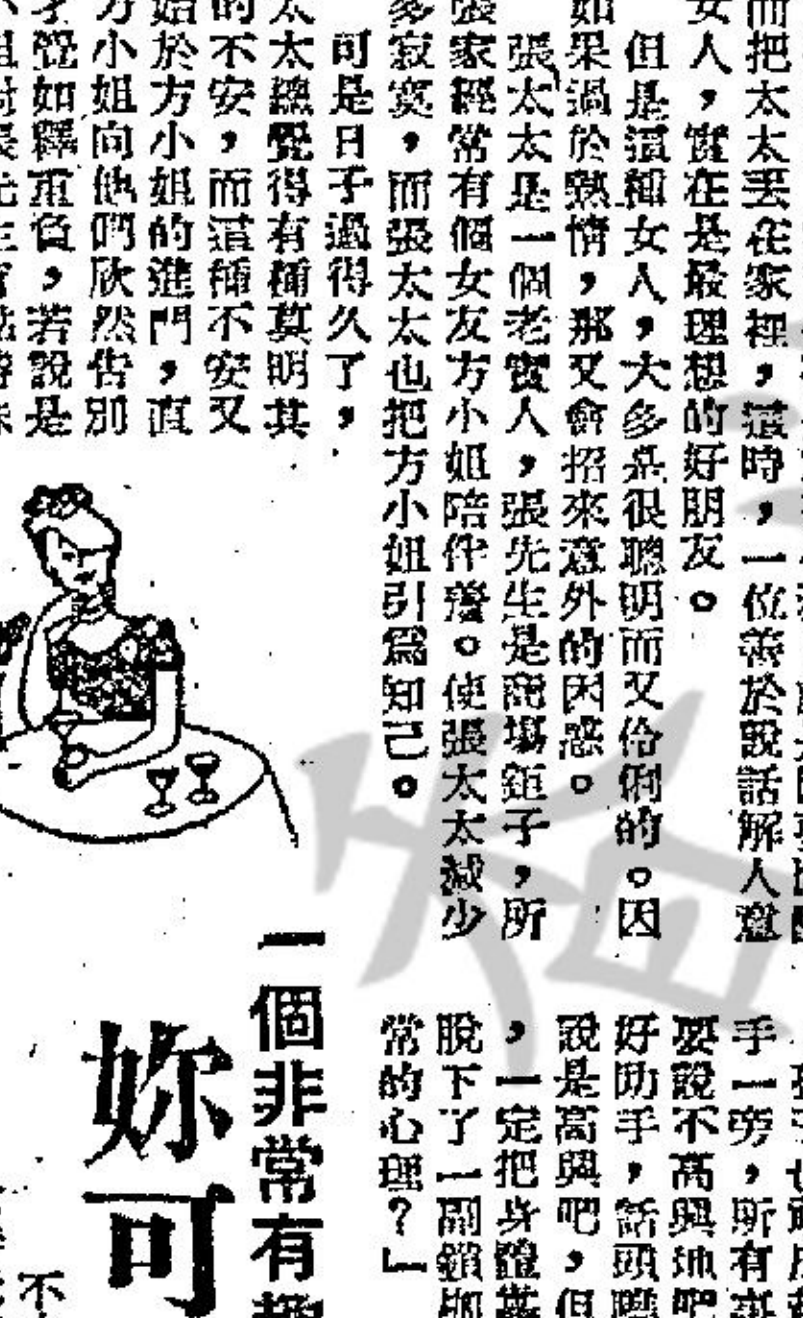 而把太太丟在家裡，這時，一位善於說話解人意
女人，實在是最理想的好朋友。
但是這種女人，大多是很聰明而又伶俐的。因
如果過於熱情，那又會招來意外的困惑。
張太太是一個老實人，張先生是商場鉅子，所
張家經常有個女友方小姐陪伴着。使張太太減少
多寂寞，而張太太也把方小姐引爲知己。
可是日子過得久了，
太太總覺得有種莫明其
的不安，而這種不安又
始於方小姐的進門，直
方小姐向他們欣然告別
才覺如釋重負，若說是
手一旁，所有
要說不高興地吧
好助手，話頭
說是高興吧，但
，一定把身體
脫下了一副鎖
常的心理？」
一個非常有趣
妳可
不